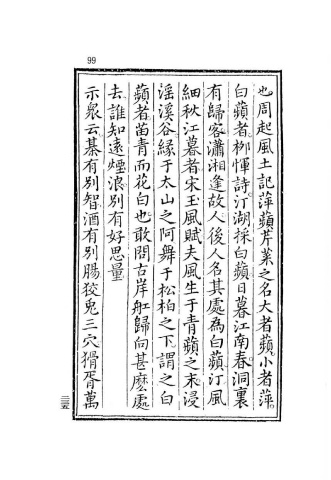 99
也周起風土記萍蘋芹菜之名大者蘋小者萍
白蘋者柳惲詩汀湖採白蘋日暮江南春洞裏
有歸客瀟湘逢故人後人名其處為白蘋汀風
細秋江暮者宋玉風賦夫風生于青蘋之末浸
淫溪谷緣于太山之阿舞于松柏之下謂之白
蘋者苗青而花白也敢問古岸舡歸向甚麼處
去誰知遠煙浪別有好思量
示眾云碁有別智酒有別腸狡兎三穴猾胥萬
三五